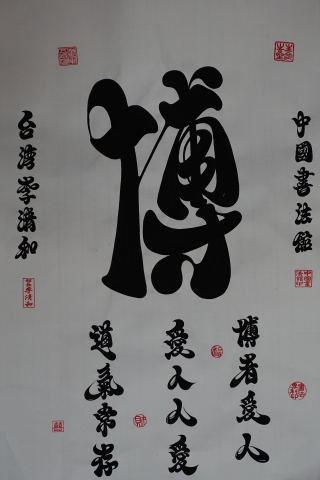 中國書法館
博
博者愛人
愛人人愛
道氣常存
台湾李清和